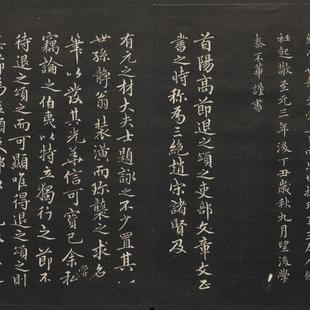 衽起敬至元三年後丁丑歲秋九月望後學
泰不華謹書
首陽高節退之頌之吏部文章文正
書之時称為三絶趙宋諸賢及
有元之材大夫士題詠之不少置其
世孫静翁装潢而珎襲之求名
筆以發其光華信可寳已余私嘗
竊論之伯夷以特立獨行之節不
待退之頌之而可顯唯得退之頌之則